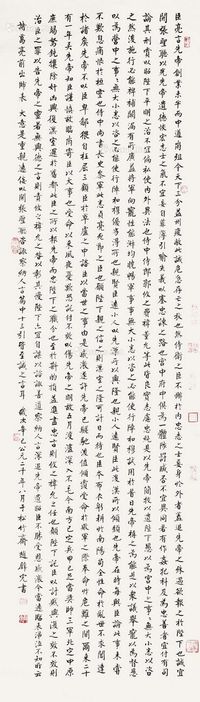 臣亮言先帝創業未半而中道崩殂今天下三分益州疲敝此誠危急存亡之秋也然侍衛之臣不懈於內忠志之士妄身於外者蓋追先帝之殊遇欲報之於陛下也誠宜
開張聖聽以光先帝遺德恢宏志士之氣不宜妄自菲薄引喻失義以塞忠諫之路也宮中府中俱為一體陟罰臧否不宜異同若有作姦犯科及為忠善者宜付有司
論其刑賞以昭陛下平明之治不宜偏私使內外異法也侍中侍郎郭攸之費禕董允等此皆良實志慮忠純是以先帝簡拔以遺陛下愚以為宮中之事事無大小悉以咨
之然後施行必能裨補闕漏有所廣益將軍向寵性行淑均曉暢軍事試用於昔日先帝稱之曰能是以眾議舉寵以為督愚
以為營中之事事無大小悉以咨之必能使行陣和穆優劣得所也親賢臣遠小人此先漢所以興隆也親小人遠賢臣此後漢所以傾頹也先帝在時每與臣論此事未嘗
不歎息痛恨於桓靈也侍中尚書長史參軍此悉貞亮死節之臣也願陛下親之信之則漢室之隆可計日而待也臣本布衣躬耕於南陽苟全性命於亂世不求聞達
於諸侯先帝不以臣卑鄙猥自枉屈三顧臣於草廬之中諮臣以當世之事由是感激遂許先帝以驅馳後值傾覆受任於敗軍之際奉命於危難之間爾來二十
有一年矣先帝知臣謹慎故臨崩寄臣以大事也受命以來夙夜憂歎恐託付不效以傷先帝之明故五月渡瀘深入不毛今南方已定兵甲已足當獎帥三軍北定中原
庶竭駑鈍攘除姦凶興復漢室還於舊都此臣之所以報先帝而忠陛下之職分也至於斟酌損益進盡忠言則攸之禕允之任也願陛下託臣以討賊興復之效不效則
治臣之罪以告先帝之靈若無興德之言則責攸之禕允等之慢以彰其咎陛下亦宜自謀以諮諏善道察納雅言深追先帝遺詔臣不勝受恩感激今當遠離臨表涕泣不知所云
諸葛亮前出師表 大意是重親遠佞以開張聖聽咨諏察納八言篇中十三引先帝至誠之言耳 公元二千年八月于松竹齋 趙錦書